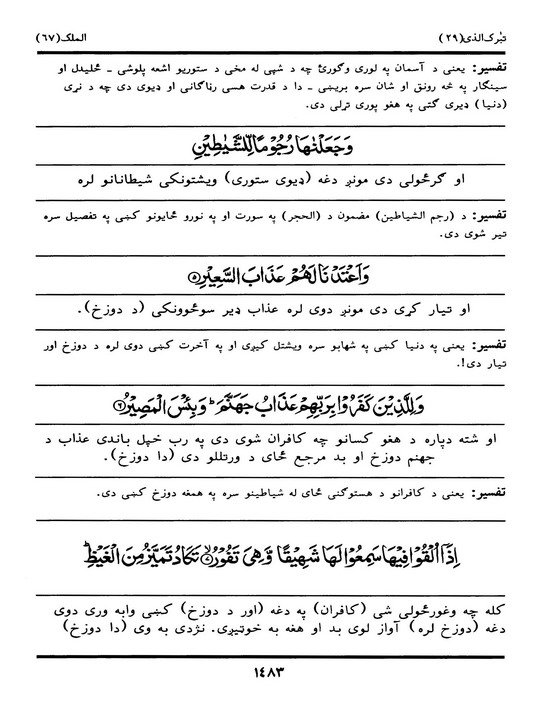 تبٰرك الذى(٢٩)
الملك(٦٧)
تفسیر: یعنی د آسمان په لوری وګورئ چه د شپی له مخی د ستوریو اشعه پلوشی ـ ځلیدل او
سینګار په څه رونق او شان سره بریښی ـ دا د قدرت هسی رڼاګانی او ډیوی دی چه د نړی
(دنیا) ډیری ګټی په هغو پوری تړلی دی.
وَجَعَلْنٰهَا رُجُوْمًا لِّلشَّيٰطِيْنِ
او ګرځولی دی مونږ دغه (ډیوی ستوری) ویشتونکی شیطانانو لره
تفسیر: د (رجم الشیاطین) مضمون د (الحجر) په سورت او په نورو ځایونو کښی په تفصیل سره
تیر شوی دی.
وَاَعْتَدْنَا لَهُمْ عَذَابَ السَّعِيْرِ۝٥
او تیار کړی دی مونږ دوی لره عذاب ډیر سوځوونکی (د دوزخ).
تفسیر: یعنی په دنیا کښی په شهابو سره ویشتل کیږی او په آخرت کښی دوی لره د دوزخ اور
تیار دی!.
وَلِلَّذِيْنَ كَفَرُوْا بِرَبِّهِمْ عَذَابُ جَهَنَّمَ ؕ وَبِئْسَ الْمَصِيْرُ۝٦
او شته دپاره د هغو کسانو چه کافران شوی دی په رب خپل باندی عذاب د
جهنم دوزخ او بد مرجع ځای د ورتللو دی (دا دوزخ).
تفسیر: یعنی د کافرانو د هستوګنی ځای له شیاطینو سره په همغه دوزخ کښی دی.
اِذَاۤ اُلْقُوْا فِيْهَا سَمِعُوْا لَهَا شَهِيْقًا وَّهِىَ تَفُوْرُ۝٧ تَكَادُ تَمَيَّزُ مِنَ الْغَيْظِ ؕ
کله چه وغورځولی شی (کافران) په دغه (اور د دوزخ) کښی وابه وری دوی
دغه (دوزخ لره) آواز لوی بد او هغه به خوټیږی. نژدی به وی (دا دوزخ)
١٤٨٣